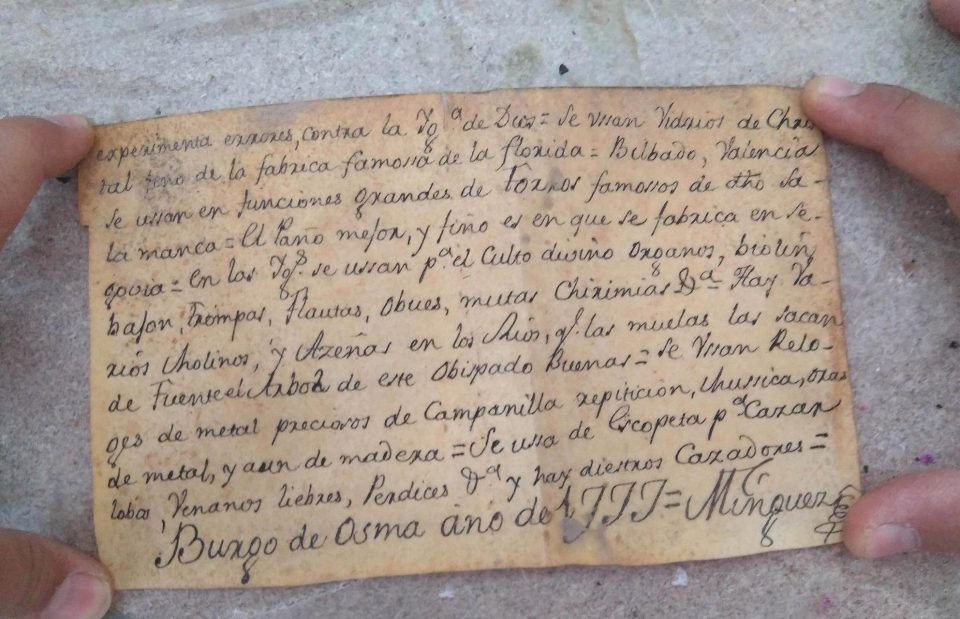 experimenta errores, contra la Yg.ª de Dios = Se vsan Vidrios de Chris
tal fino de la fabrica famossa de la florida = Bilbado, Valencia
se ussan en funciones grandes de torros famossos de dho Sa-
la manca = El Paño mejor, y fino es en que se fabrica en Se-
govia = En las Ygs. se ussan p.ª el Culto divino organos, biolin,
bajon, trompas, flautas, obues, mutas Chirimias &.ª = Hay Va-
rios Molinos, y Azeñas en los Rios, q.e las muelas las sacan
de Fuente el Arbol de este Obispado Buenas = Se Vsan Relo-
ges de metal preciosos de Campanilla repiticion, Mussica, oras
de metal, y aun de madera = Se ussa de Escopeta p.ª Cazar
lobos, Venanos liebres, Perdices &.ª y hay diestros Cazadores =
Burgo de Osma año de 1777 = Mĩnguez